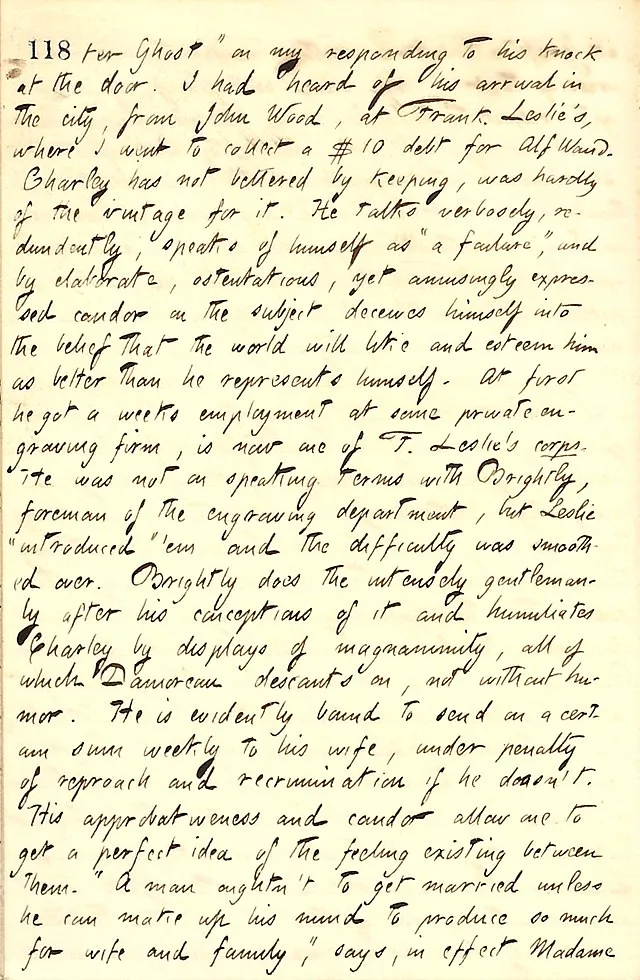 118 ter Ghost" on my responding to his knock
at the door. I had heard of his arrival in
the city, from John Wood, at Frank. Leslie's,
where I went to collect a $10 debt for Alf Waud.
Charley has not bettered by keeping, was hardly
of the vintage for it. He talks verbosely, re-
dundently, speaks of himself as "a failure", and
by elaborate, ostentatious, yet amusingly expres-
sed candor on the subject deceives himself into
the belief that the world will like and esteem him
as better than he represents himself. At first
he got a weeks employment at some private en-
graving firm, is now one of F. Leslie's corps.
He was not on speaking terms with Brightly,
foreman of the engraving department, but Leslie
"introduced" 'em and the difficulty was smooth-
ed over. Brightly does the intensely gentleman-
ly after his conceptions of it and humiliates
Charley by displays of magnanimity, all of
which Damoreau descants on, not without hu-
mor. He is evidently bound to send on a cert-
ain sum weekly to his wife, under penalty
of reproach and recrimination if he doesn't.
His approbativeness and candor allow one to
get a perfect idea of the feeling existing between
them. "A man oughtn't to get married unless
he can make up his mind to produce so much
for wife and family", says, in effect Madame